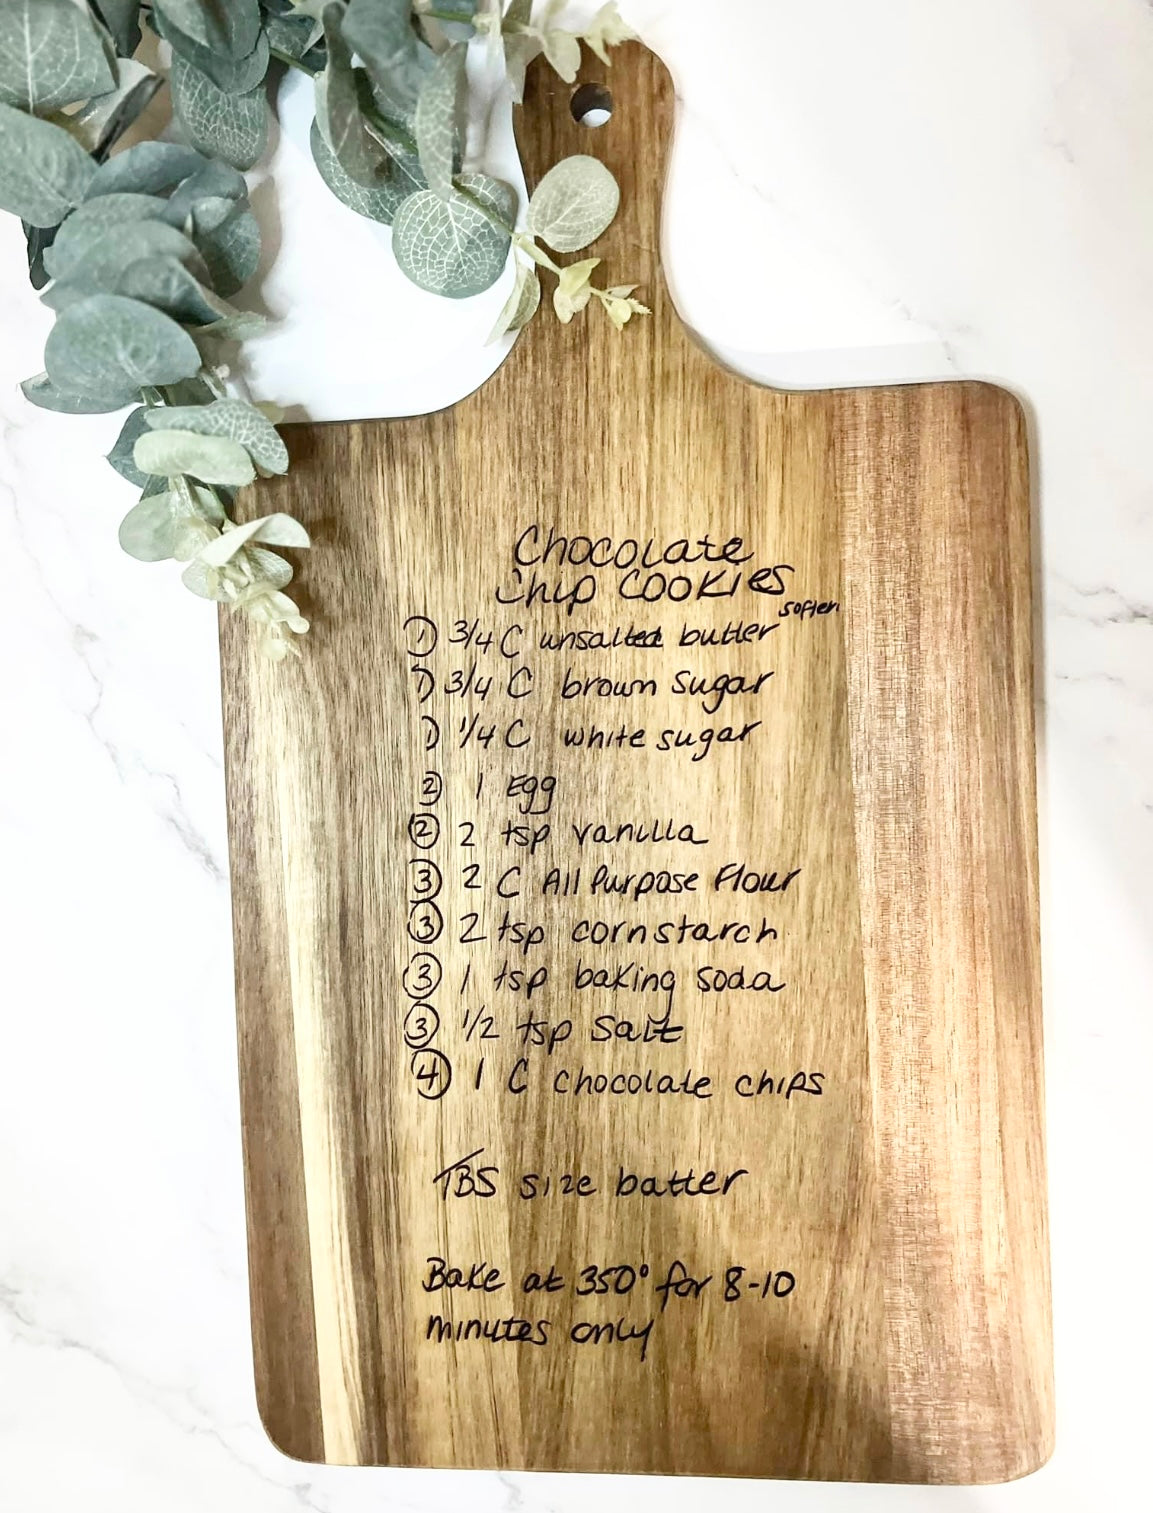 Chocolate
Chip Cookies
soften
① 3/4 C unsalted butter
1) 3/4 C brown sugar
1) 1/4 C white sugar
② 1 Egg
② 2 tsp vanilla
③ 2 C All Purpose Flour
③ 2 tsp cornstarch
③ 1 tsp baking soda
③ 1/2 tsp Salt
④ 1 C chocolate chips
TBS size batter
Bake at 350° for 8-10
minutes only